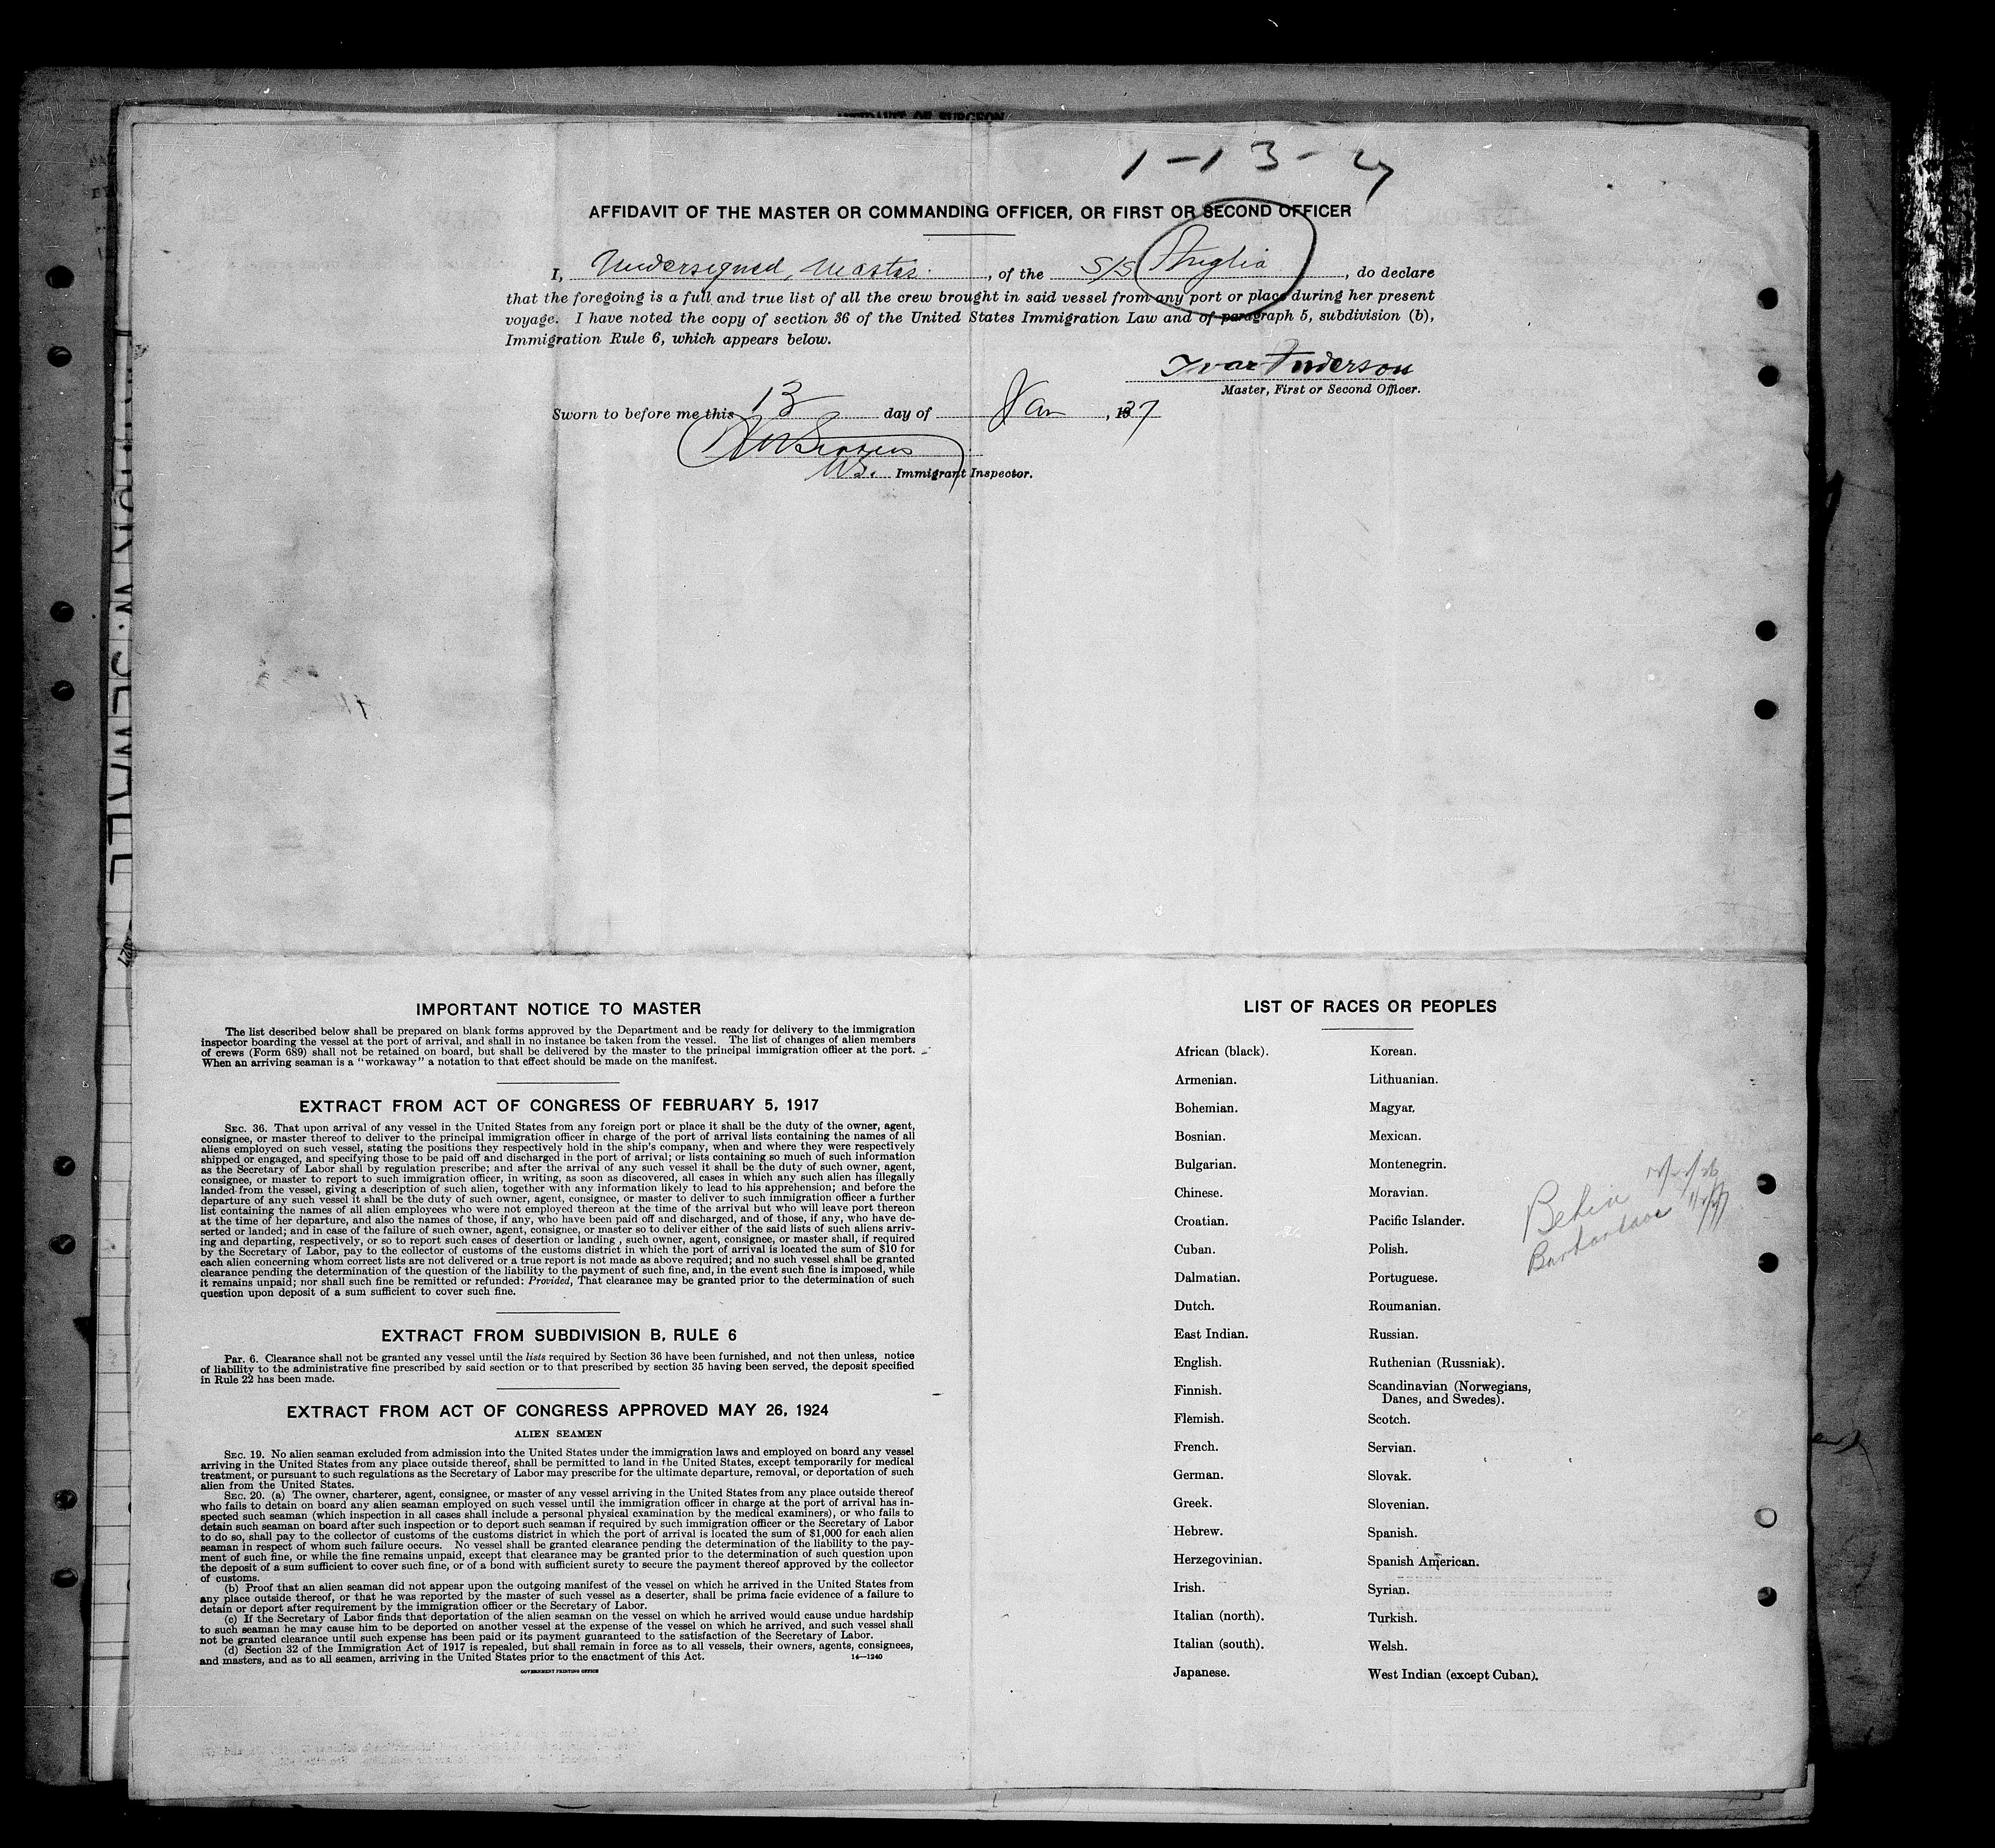 AFFIDAVIT OF SURGEON
1-13-27
AFFIDAVIT OF THE MASTER OR COMMANDING OFFICER, OR FIRST OR SECOND OFFICER
I, Undersigned, Master. , of the S/S Anglia , do declare
that the foregoing is a full and true list of all the crew brought in said vessel from any port or place during her present
voyage. I have noted the copy of section 36 of the United States Immigration Law and of paragraph 5, subdivision (b),
Immigration Rule 6, which appears below.
Ivar Anderson
Master, First or Second Officer.
Sworn to before me this 13 day of Jan , 27
Immigrant Inspector.
IMPORTANT NOTICE TO MASTER
The list described below shall be prepared on blank forms approved by the Department and be ready for delivery to the immigration
inspector boarding the vessel at the port of arrival, and shall in no instance be taken from the vessel. The list of changes of alien members
of crews (Form 689) shall not be retained on board, but shall be delivered by the master to the principal immigration officer at the port.
When an arriving seaman is a "workaway" a notation to that effect should be made on the manifest.
EXTRACT FROM ACT OF CONGRESS OF FEBRUARY 5, 1917
SEC. 36. That upon arrival of any vessel in the United States from any foreign port or place it shall be the duty of the owner, agent,
consignee, or master thereof to deliver to the principal immigration officer in charge of the port of arrival lists containing the names of all
aliens employed on such vessel, stating the positions they respectively hold in the ship's company, when and where they were respectively
shipped or engaged, and specifying those to be paid off and discharged in the port of arrival; or lists containing so much of such information
as the Secretary of Labor shall by regulation prescribe; and after the arrival of any such vessel it shall be the duty of such owner, agent,
consignee, or master to report to such immigration officer, in writing, as soon as discovered, all cases in which any such alien has illegally
landed from the vessel, giving a description of such alien, together with any information likely to lead to his apprehension; and before the
departure of any such vessel it shall be the duty of such owner, agent, consignee, or master to deliver to such immigration officer a further
list containing the names of all alien employees who were not employed thereon at the time of the arrival but who will leave port thereon
at the time of her departure, and also the names of those, if any, who have been paid off and discharged, and of those, if any, who have de-
serted or landed; and in case of the failure of such owner, agent, consignee, or master so to deliver either of the said lists of such aliens arriv-
ing and departing, respectively, or so to report such cases of desertion or landing , such owner, agent, consignee, or master shall, if required
by the Secretary of Labor, pay to the collector of customs of the customs district in which the port of arrival is located the sum of $10 for
each alien concerning whom correct lists are not delivered or a true report is not made as above required; and no such vessel shall be granted
clearance pending the determination of the question of the liability to the payment of such fine, and, in the event such fine is imposed, while
it remains unpaid; nor shall such fine be remitted or refunded: Provided, That clearance may be granted prior to the determination of such
question upon deposit of a sum sufficient to cover such fine.
EXTRACT FROM SUBDIVISION B, RULE 6
Par. 6. Clearance shall not be granted any vessel until the lists required by Section 36 have been furnished, and not then unless, notice
of liability to the administrative fine prescribed by said section or to that prescribed by section 35 having been served, the deposit specified
in Rule 22 has been made.
EXTRACT FROM ACT OF CONGRESS APPROVED MAY 26, 1924
ALIEN SEAMEN
SEC. 19. No alien seaman excluded from admission into the United States under the immigration laws and employed on board any vessel
arriving in the United States from any place outside thereof, shall be permitted to land in the United States, except temporarily for medical
treatment, or pursuant to such regulations as the Secretary of Labor may prescribe for the ultimate departure, removal, or deportation of such
alien from the United States.
SEC. 20. (a) The owner, charterer, agent, consignee, or master of any vessel arriving in the United States from any place outside thereof
who fails to detain on board any alien seaman employed on such vessel until the immigration officer in charge at the port of arrival has in-
spected such seaman (which inspection in all cases shall include a personal physical examination by the medical examiners), or who fails to
detain such seaman on board after such inspection or to deport such seaman if required by such immigration officer or the Secretary of Labor
to do so, shall pay to the collector of customs of the customs district in which the port of arrival is located the sum of $1,000 for each alien
seaman in respect of whom such failure occurs. No vessel shall be granted clearance pending the determination of the liability to the pay-
ment of such fine, or while the fine remains unpaid, except that clearance may be granted prior to the determination of such question upon
the deposit of a sum sufficient to cover such fine, or of a bond with sufficient surety to secure the payment thereof approved by the collector
of customs.
(b) Proof that an alien seaman did not appear upon the outgoing manifest of the vessel on which he arrived in the United States from
any place outside thereof, or that he was reported by the master of such vessel as a deserter, shall be prima facie evidence of a failure to
detain or deport after requirement by the immigration officer or the Secretary of Labor.
(c) If the Secretary of Labor finds that deportation of the alien seaman on the vessel on which he arrived would cause undue hardship
to such seaman he may cause him to be deported on another vessel at the expense of the vessel on which he arrived, and such vessel shall
not be granted clearance until such expense has been paid or its payment guaranteed to the satisfaction of the Secretary of Labor.
(d) Section 32 of the Immigration Act of 1917 is repealed, but shall remain in force as to all vessels, their owners, agents, consignees,
and masters, and as to all seamen, arriving in the United States prior to the enactment of this Act. 14—1240
GOVERNMENT PRINTING OFFICE
LIST OF RACES OR PEOPLES
African (black). Korean.
Armenian. Lithuanian.
Bohemian. Magyar.
Bosnian. Mexican.
Bulgarian. Montenegrin.
Chinese. Moravian.
Croatian. Pacific Islander.
Cuban. Polish.
Dalmatian. Portuguese.
Dutch. Roumanian.
East Indian. Russian.
English. Ruthenian (Russniak).
Finnish. Scandinavian (Norwegians,
Danes, and Swedes).
Flemish. Scotch.
French. Servian.
German. Slovak.
Greek. Slovenian.
Hebrew. Spanish.
Herzegovinian. Spanish American.
Irish. Syrian.
Italian (north). Turkish.
Italian (south). Welsh.
Japanese. West Indian (except Cuban).